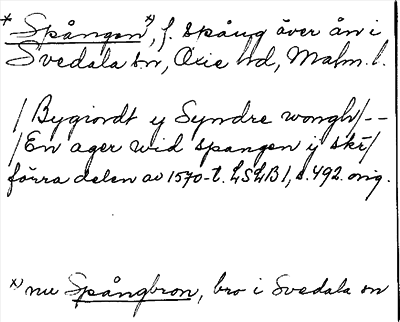 * Spången *), f. spång över ån i
Svedala sn, Oxie hd, Malm. l.
/Bygiordt y Syndre wongh/--
/En ager wid spangen y skr/
förra delen av 1570-t. LSLB 1, s. 492. orig.
*) nu Spångbron, bro i Svedala sn